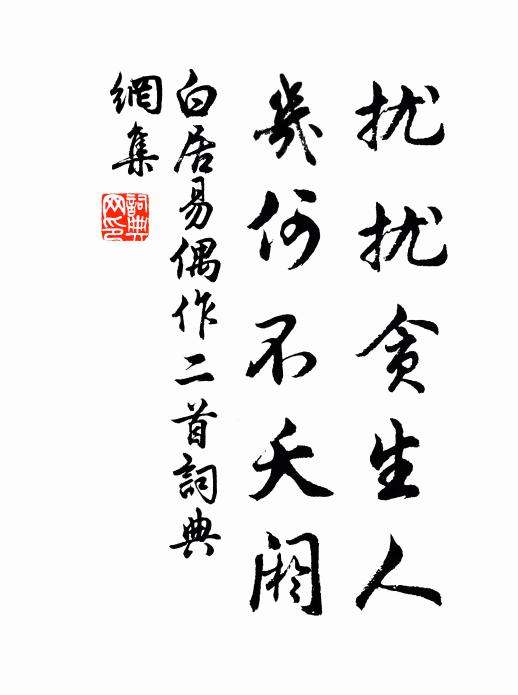 扰扰贪生人
幾何不夭阏
白居易偶作二首詞典
網集
詞典
网印